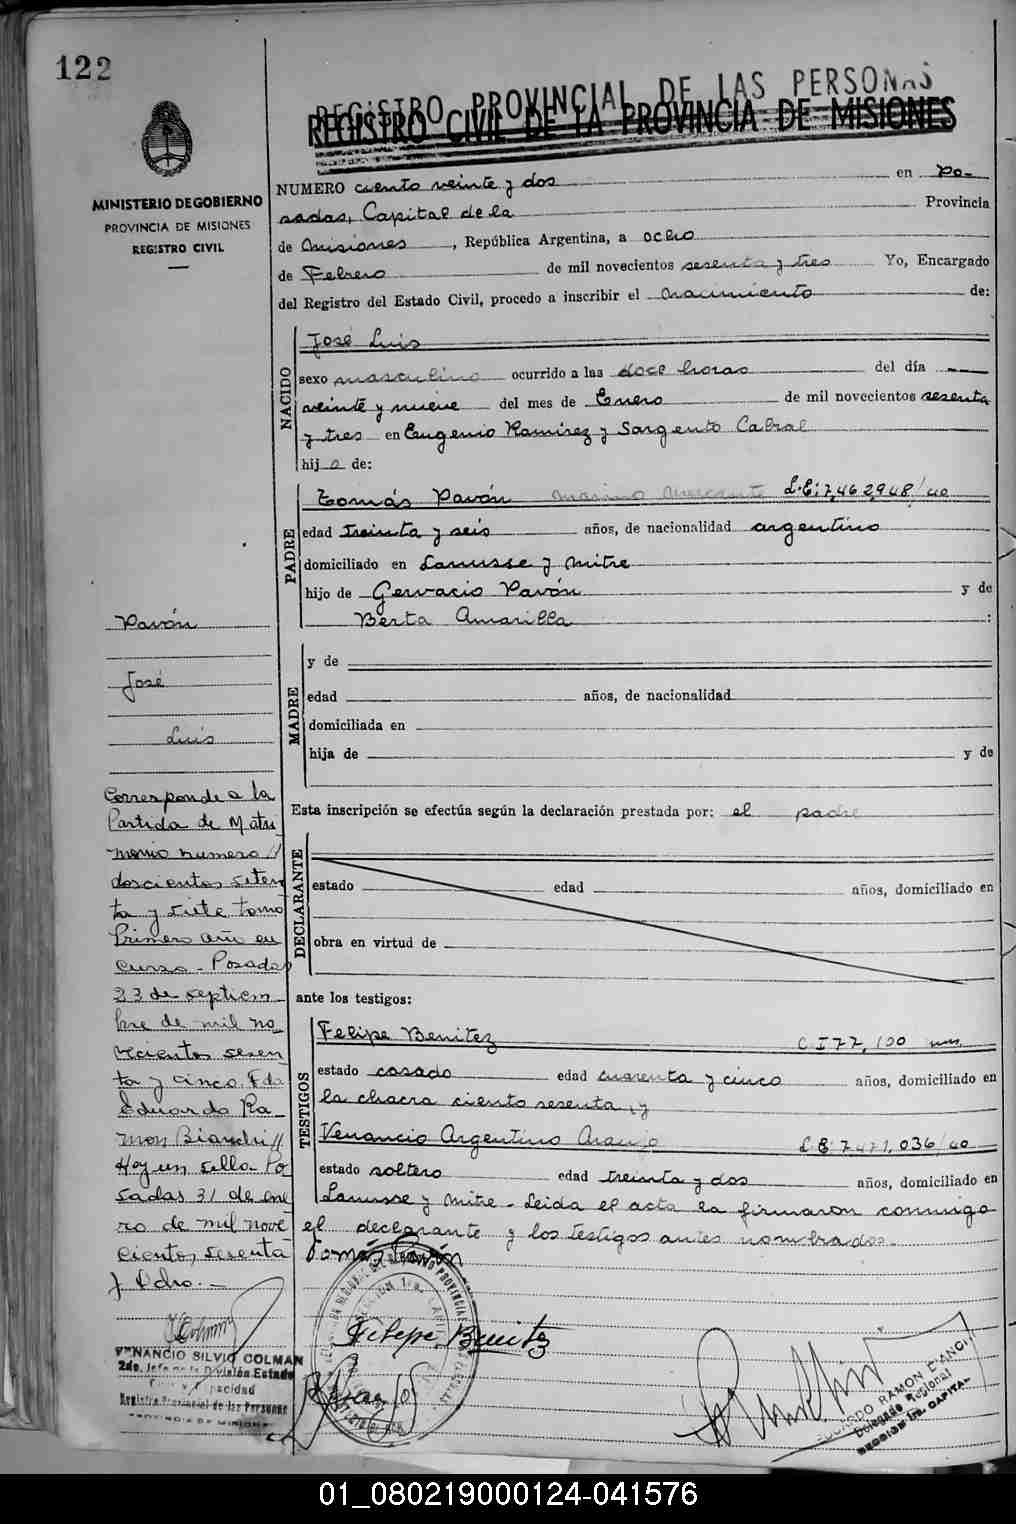 122
REGISTRO PROVINCIAL DE LAS PERSONAS
REGISTRO CIVIL DE LA PROVINCIA DE MISIONES
MINISTERIO DE GOBIERNO
PROVINCIA DE MISIONES
REGISTRO CIVIL
NUMERO ciento veinte y dos en Po-
sadas, Capital de la Provincia
de Misiones, República Argentina, a ocho
de Febrero de mil novecientos sesenta y tres Yo, Encargado
del Registro del Estado Civil, procedo a inscribir el nacimiento de:
NACIDO
José Luis
sexo masculino ocurrido a las doce horas del día
veinte y nueve del mes de Enero de mil novecientos sesenta
y tres en Eugenio Ramírez y Sargento Cabral
hij o de:
PADRE
Tomás Pavón L.E: 7,462,948/40
edad treinta y seis años, de nacionalidad argentino
domiciliado en Lanusse y Mitre
hijo de Gervacio Pavón y de
Berta Amarilla :
MADRE
y de
edad años, de nacionalidad
domiciliada en
hija de y de
Esta inscripción se efectúa según la declaración prestada por: el padre
DECLARANTE
estado edad años, domiciliado en
obra en virtud de
ante los testigos:
TESTIGOS
Felipe Benitez C I 77,100
estado casado edad cuarenta y cinco años, domiciliado en
la chacra ciento sesenta, y
Venancio Argentino Araujo L E: 7471,036/40
estado soltero edad treinta y dos años, domiciliado en
Lanusse y Mitre - Leida el acta la firmaron conmigo
el declarante y los testigos antes nombrados.
Tomás Pavón
Felipe Benitez
EDUARDO RAMON D'ANGI
Delegado Regional
SECCION 1ra. CAPITAL
Pavón
José
Luis
Corresponde a la
Partida de Matri
monio numero //
doscientos seten
ta y siete tomo
Primero año en
curso - Posadas
23 de septiem
bre de mil no
vecientos sesen
ta y cinco. Fdo
Eduardo Ra-
mon Bianchi //
Hay un sello. Po
sadas 31 de ene
ro de mil nove
cientos sesenta
y Ocho. -
VENANCIO SILVIO COLMAN
2do. Jefe de la División Estado
Civil y Capacidad
Registro Provincial de las Personas
PROVINCIA DE MISIONES
01_080219000124-041576